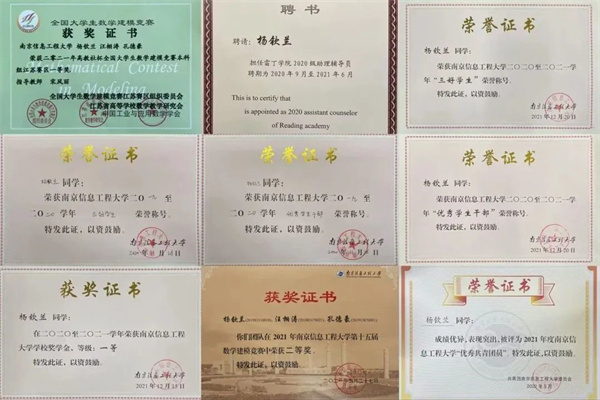 全国大学生数学建模竞赛
获奖证书
南京信息工程大学 杨钦兰 汪栩涛 孔德豪
荣获二零二一年高教社杯全国大学生数学建模竞赛本科
组江苏赛区一等奖
指导教师 宋凤丽
全国大学生数学建模竞赛江苏赛区组织委员会
江苏省高等学校数学教学研究会
聘书
聘请：杨钦兰
担任雷丁学院2020级助理辅导员
聘期为2020年9月至2021年6月
This is to certify that
is appointed as 2020 assistant counselor
of Reading academy
荣誉证书
杨钦兰 同学：
荣获南京信息工程大学二〇二〇-二〇二一学
年“三好学生” 荣誉称号。
特发此证，以资鼓励。
南京信息工程大学
2021年12月20日
荣誉证书
同学：
荣获南京信息工程大学二〇一九 至
二〇二〇学年 三好学生 荣誉称号。
特发此证，以资鼓励。
南京信息工程大学
荣誉证书
同学：
荣获南京信息工程大学二〇一九 至
二〇二〇学年 优秀学生干部 荣誉称号。
特发此证，以资鼓励。
南京信息工程大学
荣誉证书
杨钦兰 同学：
荣获南京信息工程大学二〇二〇-二〇二一学
年“优秀学生干部” 荣誉称号。
特发此证，以资鼓励。
南京信息工程大学
2021年12月20日
获奖证书
杨钦兰 同学：
在二〇二〇至二〇二一学年荣获南京信息工程
大学学校奖学金，等级：一等
特发此证，以资鼓励。
南京信息工程大学
2021年12月15日
南京信息工程大学
获奖证书
杨钦兰 汪栩涛 孔德豪
你们团队在2021年南京信息工程大学第十五届
数学建模竞赛中荣获 二等奖
特发此证，以资鼓励。
荣誉证书
杨钦兰 同学：
成绩优异，表现突出，被评为2021年度南京信
息工程大学“优秀共青团员” 特发此证，以资鼓励。